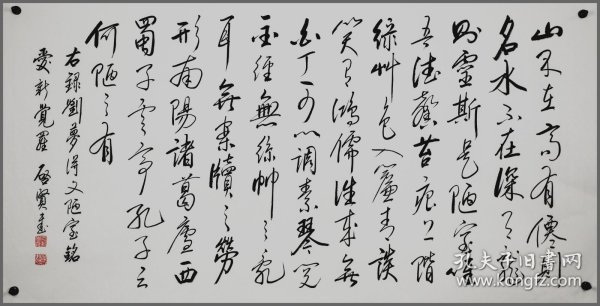 山不在高有僊則
名水不在深有龍
則靈斯是陋室唯
吾德馨苔痕上階
綠艸色入簾青談
笑有鴻儒往來無
白丁可以調素琴閱
金經無絲竹之亂
耳無案牘之勞
形南陽諸葛廬西
蜀子雲亭孔子云
何陋之有
右錄劉夢得文陋室銘
愛新覺羅 啟賢書
孔夫子旧书网
www.kongfz.com